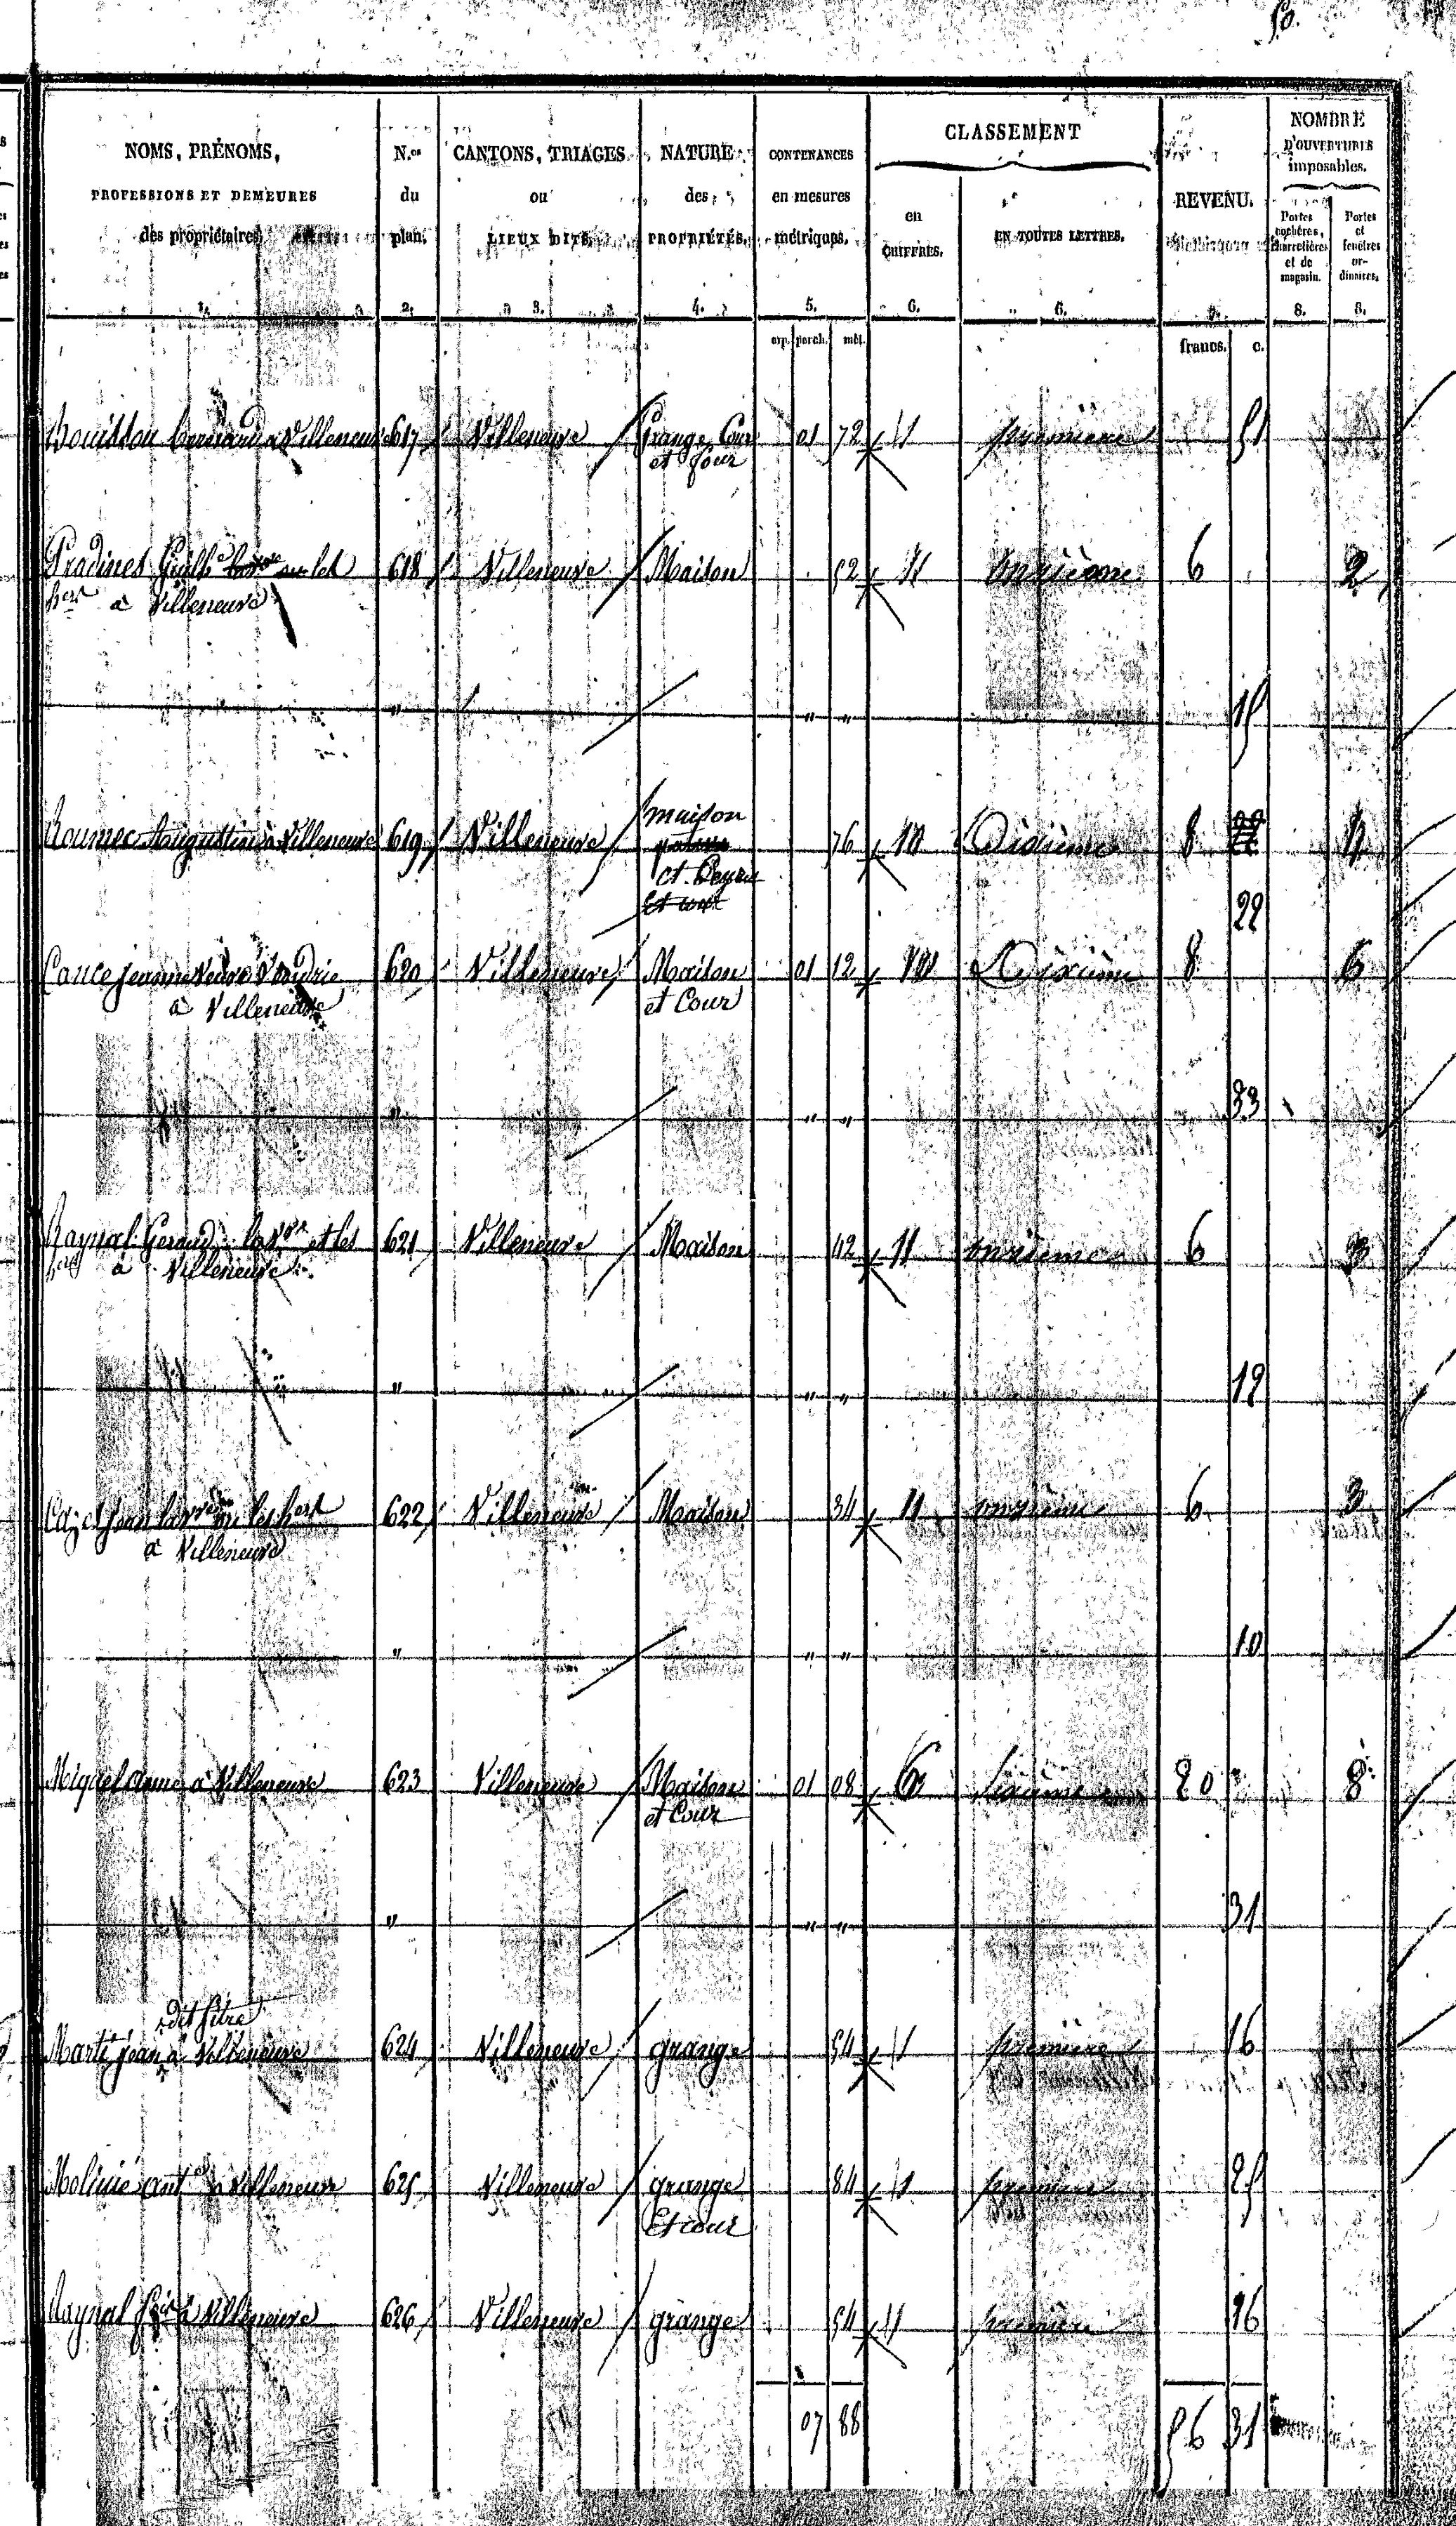 50.
NOMS, PRÉNOMS,
PROFESSIONS ET DEMEURES
des propriétaires
1.
N.os
du
plan.
2.
CANTONS, TRIAGES
ou
LIEUX DITS.
3.
NATURE
des
PROPRIÉTÉS.
4.
CONTENANCES
en mesures
métriques.
5.
arp. perch. mèt.
CLASSEMENT
en
CHIFFRES.
6.
EN TOUTES LETTRES.
6.
REVENU.
francs. c.
NOMBRE
D'OUVERTURES
imposables.
Portes
cochères,
charretières
et de
magasin.
8.
Portes
et
fenêtres
or-
dinaires.
8.
Bouisson Bernard à Villeneuve 617 Villeneuve Grange Cour 01 72 1 première 51
et four
Pradines Guill.e les 618 Villeneuve Maison 52 11 onzième 6 2
hers à Villeneuve
" " " 15
maison
Roumec Augustin à Villeneuve 619 Villeneuve 76 10 Dixième 8
et
22
Cance jeanne Veuve à Villeneuve 620 Villeneuve Maison 01 12 10 Dixième 8 6
et Cour
" " " 33
Raynal Geraud la vve et les 621 Villeneuve Maison 42 11 onzième 6 3
hers à Villeneuve
" " " 12
jean la vve ou les hers 622 Villeneuve Maison 34 11 onzième 6 3
à Villeneuve
" " " 10
Miquel à Villeneuve 623 Villeneuve Maison 01 08 6 Sixième 20 8
et Cour
" " " 31
dit
Marti jean à Villeneuve 624 Villeneuve grange 54 1 première 16
Molinié ant.e à Villeneuve 625 Villeneuve grange 84 1 première 25
Et cour
Raynal à Villeneuve 626 Villeneuve grange 54 1 première 16
07 88 56 31